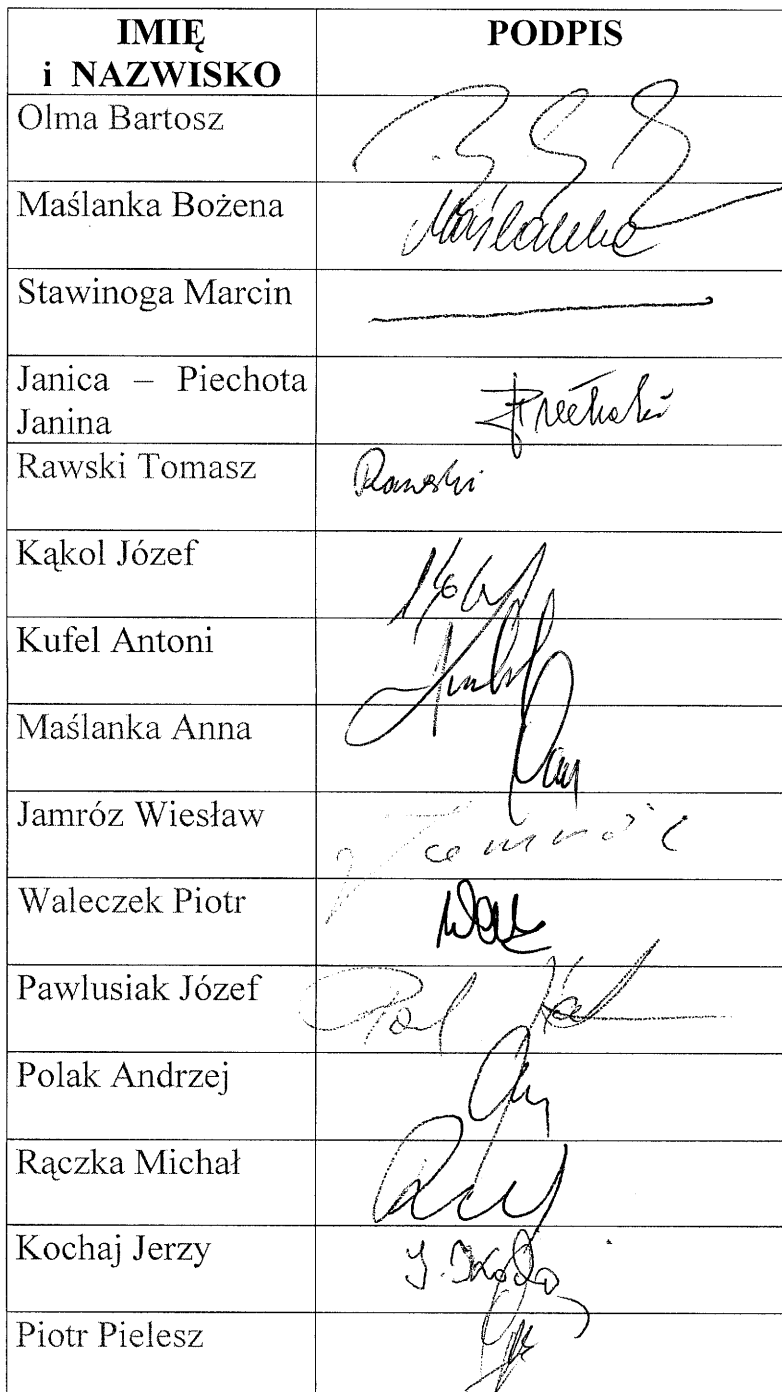 IMIĘ
i NAZWISKO
PODPIS
Olma Bartosz
Maślanka Bożena
Maślanka
Stawinoga Marcin
Janica – Piechota
Janina
Rawski Tomasz
Rawski
Kąkol Józef
Kufel Antoni
Maślanka Anna
Jamróz Wiesław
Jamróz
Waleczek Piotr
Pawlusiak Józef
Polak Andrzej
Rączka Michał
Kochaj Jerzy
Piotr Pielesz